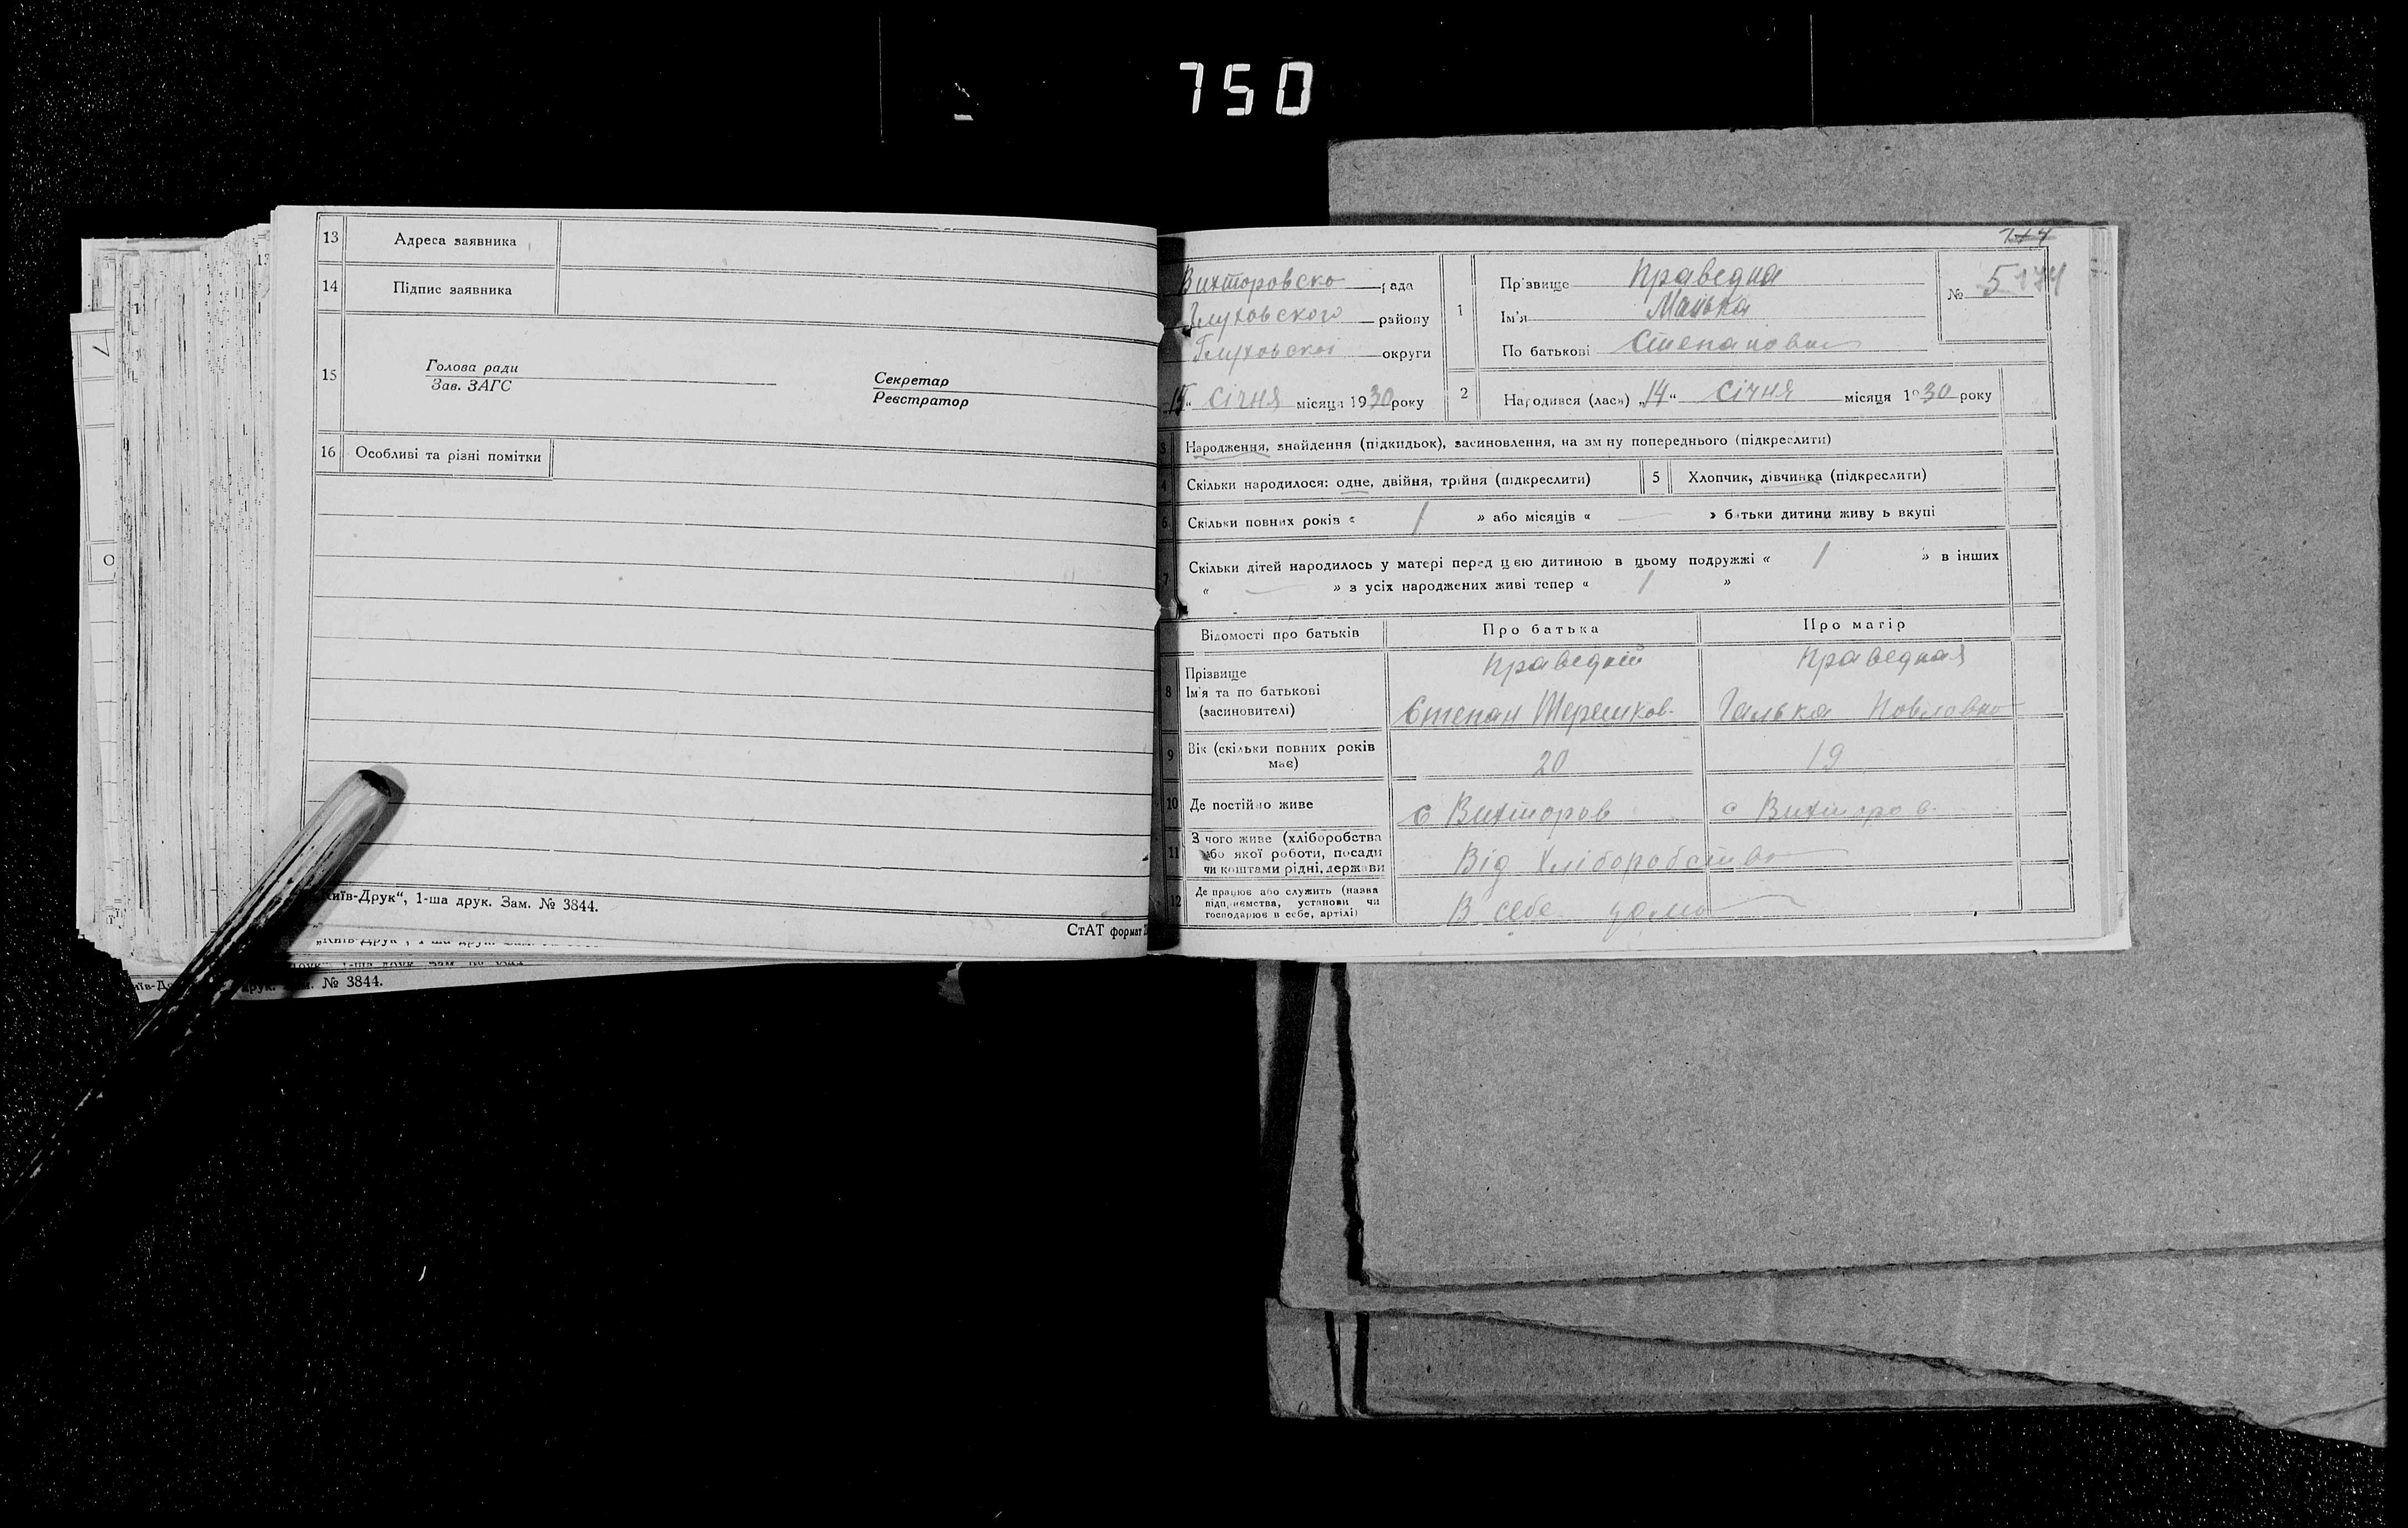 750
13 Адреса заявника
14 Підпис заявника
15 Голова ради
Зав. ЗАГС
Секретар
Реєстратор
16 Особливі та різні помітки
"Київ-Друк", 1-ша друк. Зам. № 3844.
СтАТ формат
№ 3844.
Вихторовско рада
Глуховского району
Глуховскої округи
15 " січня місяця 1930 року
1 Прізвище Праведна
Ім'я Манька
По батькові Степановна
№ 5 174
2 Народився (лася) „14" січня місяця 1930 року
3 Народження, знайдення (підкидьок), засиновлення, на зміну попереднього (підкреслити)
4 Скільки народилося: одне, двійня, трійня (підкреслити)
5 Хлопчик, дівчинка (підкреслити)
6 Скільки повних років « 1 » або місяців « — » батьки дитини живуть вкупі
7 Скільки дітей народилось у матері перед цією дитиною в цьому подружжі « 1 » в інших
« — » з усіх народжених живі тепер « 1 »
Відомості про батьків Про батька Про матір
8 Прізвище Праведній Праведная
Ім'я та по батькові
(засиновителі) Степан Терешков. Галька Повловно
9 Вік (скільки повних років має) 20 19
10 Де постійно живе с Вихторов с Вихторов.
11 З чого живе (хліборобства
або якої роботи, посади
чи коштами рідні, держави Від хліборобство
12 Де працює або служить (назва
підприємства, установи чи
господарює в себе, артілі) В себе дома